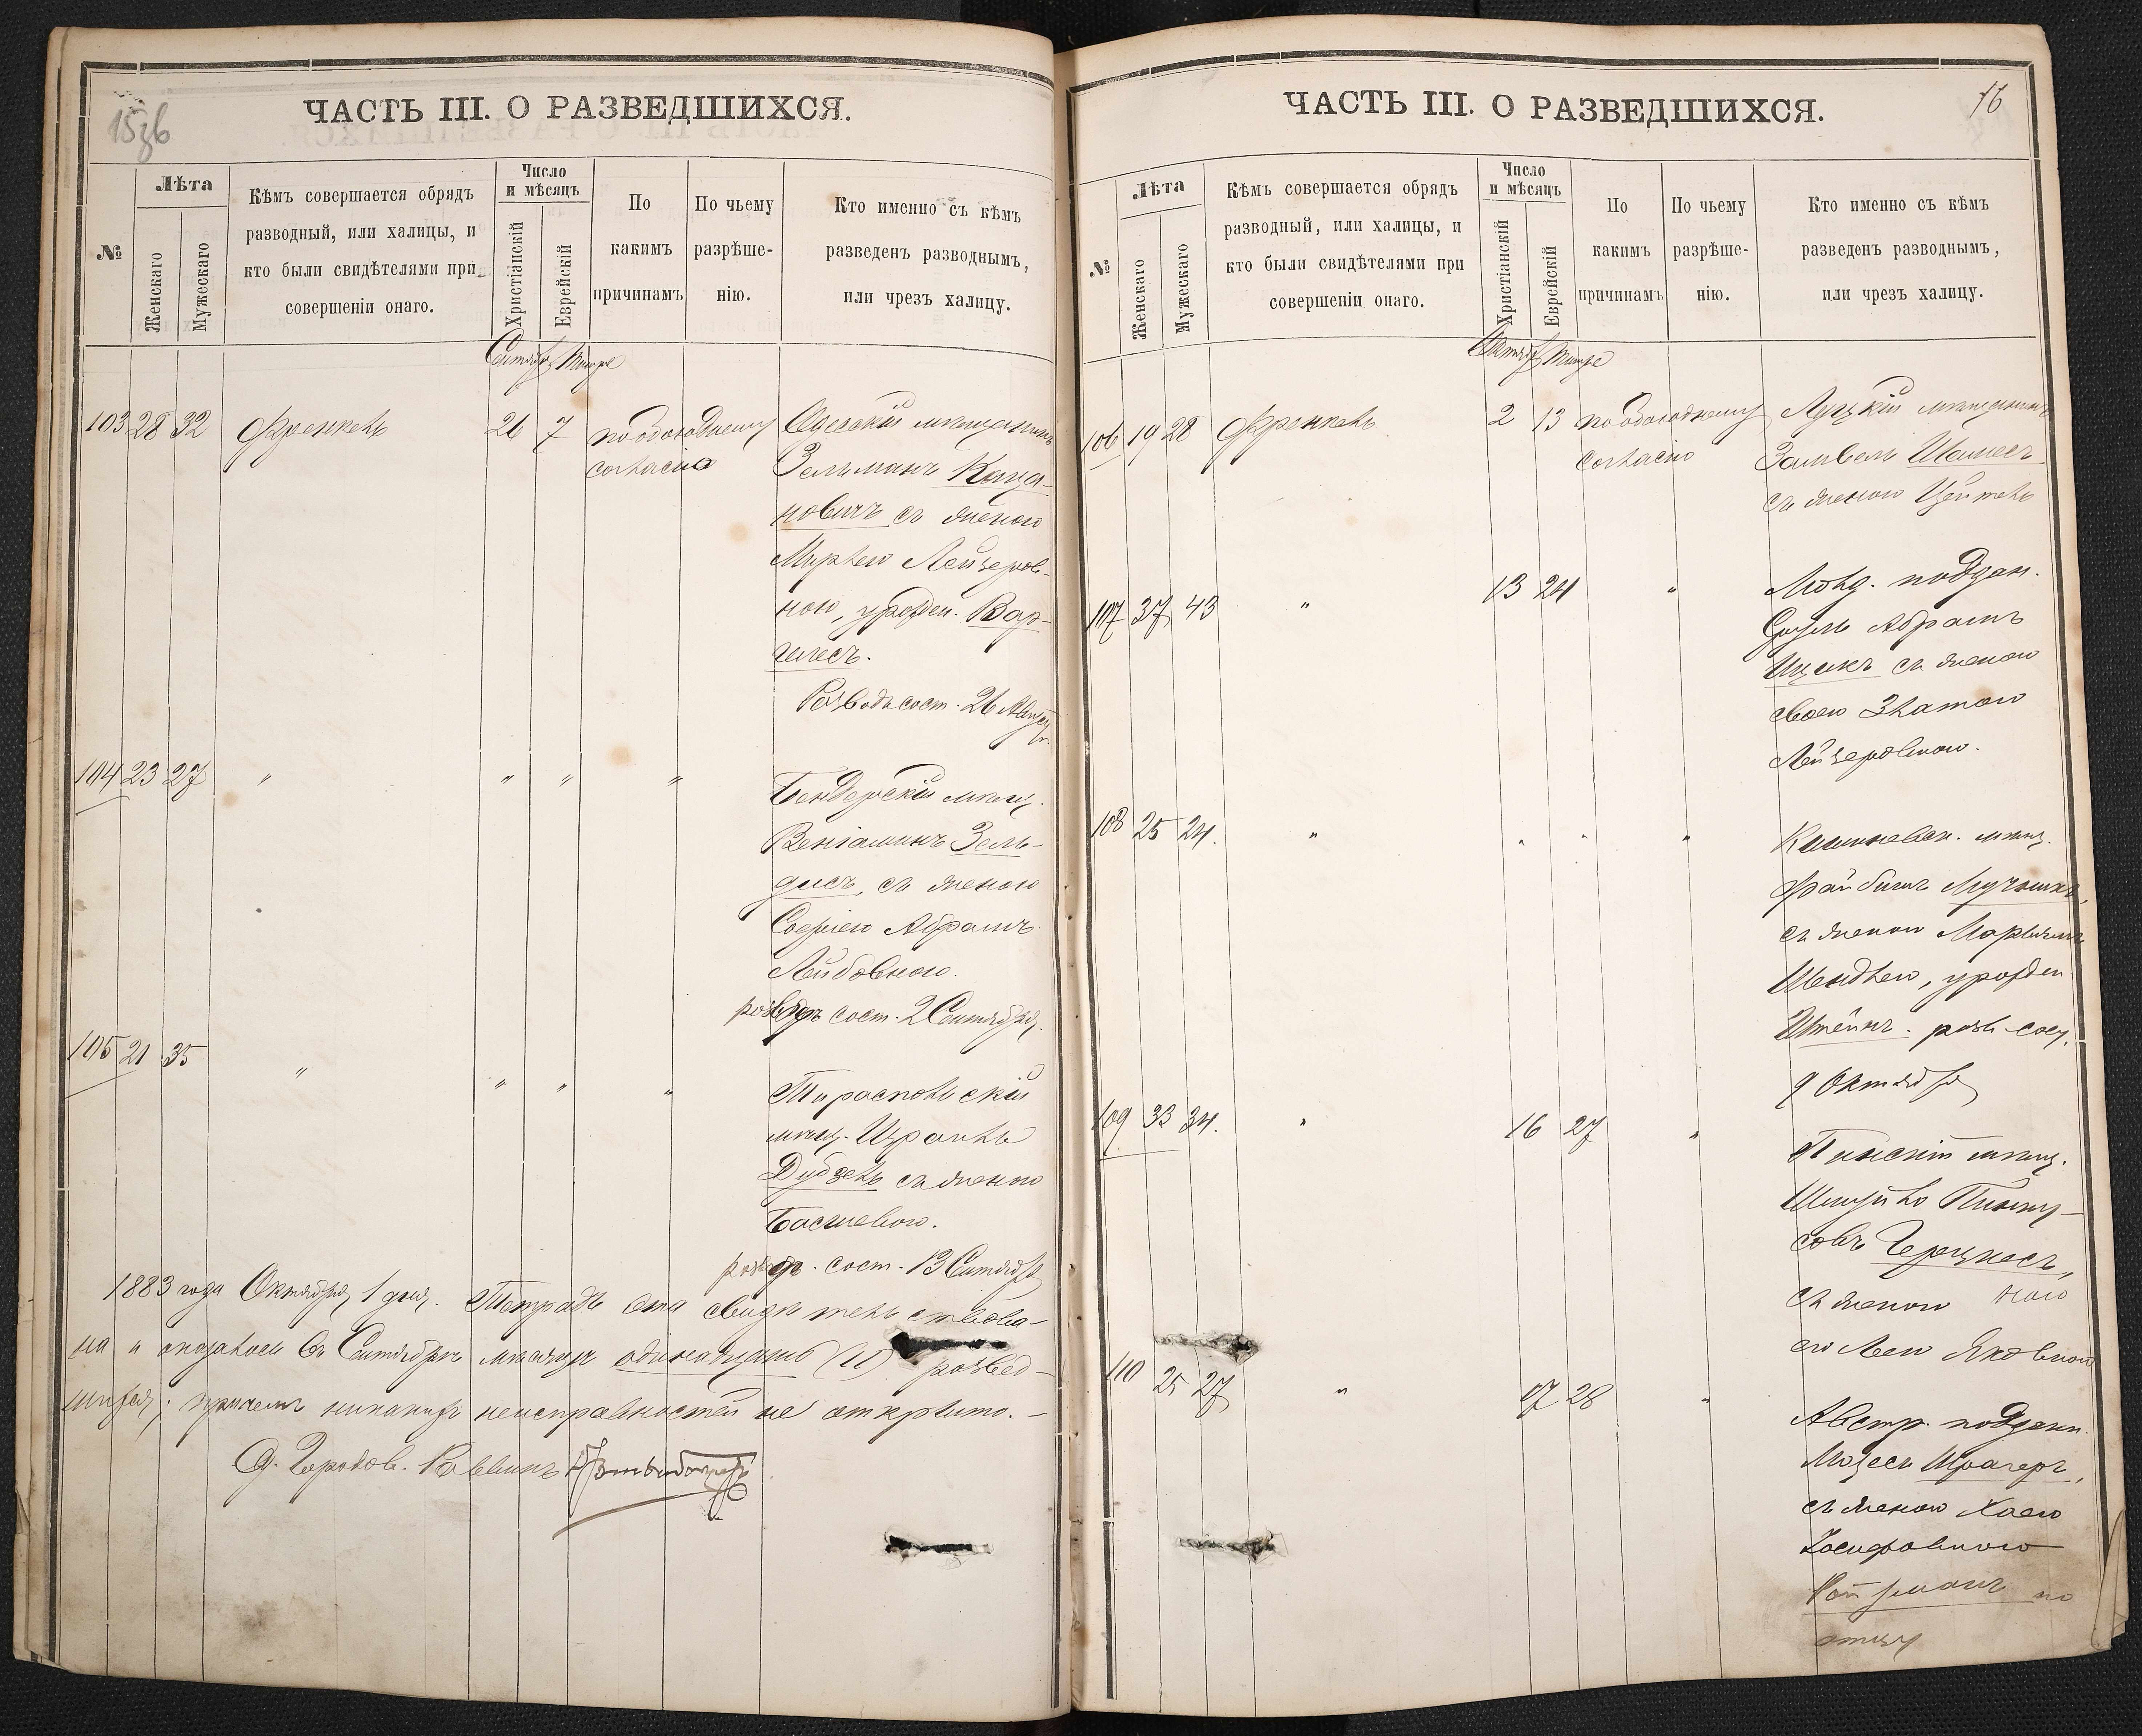 15зб
ЧАСТЬ III. О РАЗВЕДШИХСЯ.
№
Лѣта
Женскаго
Мужескаго
Кѣмъ совершается обрядъ
разводный, или халицы, и
кто были свидѣтелями при
совершеніи онаго.
Число
и мѣсяцъ
Христіанскій
Еврейскій
По
какимъ
причинамъ
По чьему
разрѣше-
нію.
Кто именно съ кѣмъ
разведенъ разводнымъ,
или чрезъ халицу.
Сентябрь Тишре
103 28 32 Френкель 26 7 по обоюдному Одесскій мѣщанинъ
согласію Зельманъ Каца-
новичъ съ женою
Лейзеров-
ною, урожден. Вар-
Разводъ сост. 26 Августа
104 23 27 " " " " Бендерскій мѣщ.
Веніаминъ Зель-
дисъ, съ женою
Софіею Абрамъ
Лейбовною.
разводъ сост. 2 Сентября.
105 21 35 " " " " Тираспольскій
мѣщ. Израиль
съ женою
Басшевою.
разводъ. сост. 13 Сентября
1883 года Октября 1 дня. Тетрадь сія свидѣтельствова-
на и оказалось въ Сентябрѣ мѣсяцѣ одинадцать (11) развед-
шихся; причемъ никакихъ неисправностей не открыто. —
Городов. Раввинъ
16
ЧАСТЬ III. О РАЗВЕДШИХСЯ.
№
Лѣта
Женскаго
Мужескаго
Кѣмъ совершается обрядъ
разводный, или халицы, и
кто были свидѣтелями при
совершеніи онаго.
Число
и мѣсяцъ
Христіанскій
Еврейскій
По
какимъ
причинамъ
По чьему
разрѣше-
нію.
Кто именно съ кѣмъ
разведенъ разводнымъ,
или чрезъ халицу.
Октябрь Тишре
106 19 28 Френкель 2 13 по обоюдному Луцкій мѣщанинъ
согласію Замвель Шамесъ
съ женою Цейтель
107 37 43 " 13 24 " Молд. поддан.
Сруль Абрамъ
Ицикъ съ женою
своею Златою
Лейзеровною.
108 25 24. " " " " Кишиневск. мѣщ.
Файбишъ Мучникъ,
съ женою
Шендлею, урожден
Штейнъ. разв. сост.
9 Октября
109 33 34. " 16 27 " Пинскій мѣщ.
Шмуйло Пинку-
совъ
съ женою
его Леею Яковною
110 25 27 " 17 28 " Австр. поддан.
Мозесъ Шрагеръ,
съ женою Хаею
Іосифовною
по
отцу